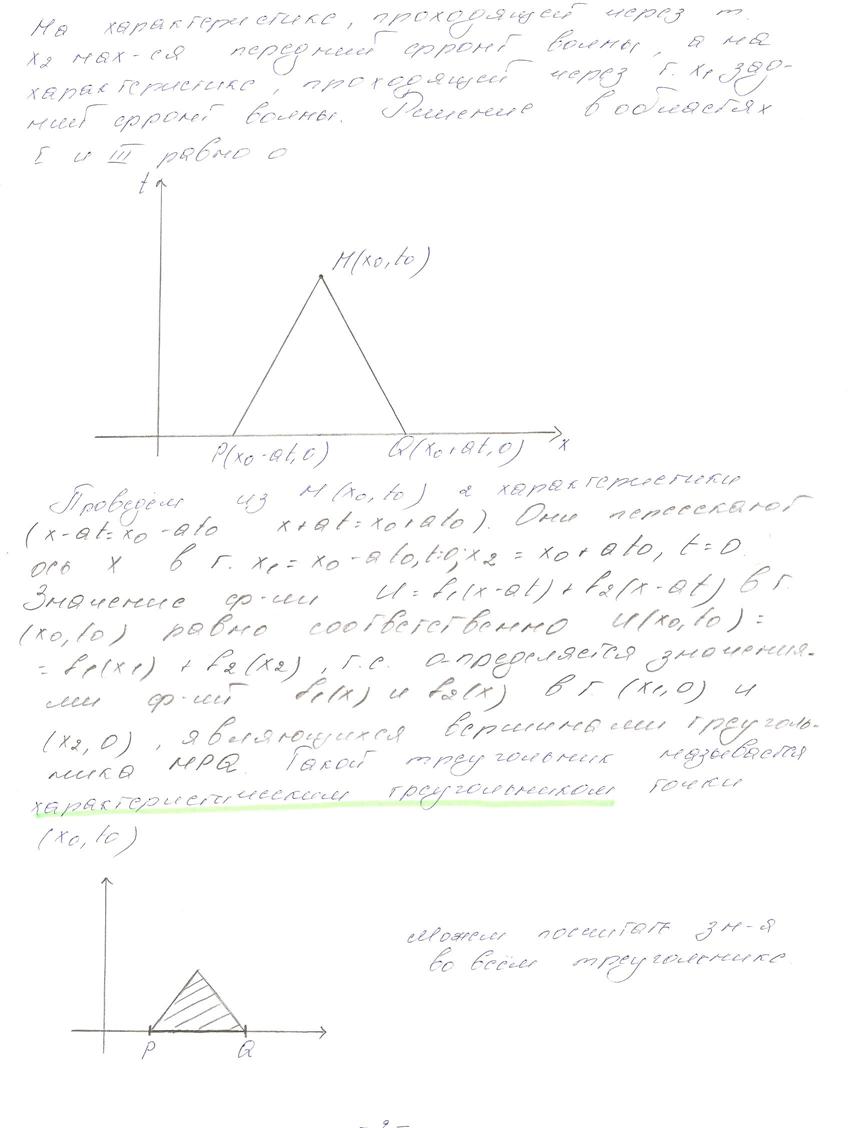 На характеристике, проходящей через т.
x₂ нах-ся передний фронт волны, а на
характеристике, проходящей через т. x₁ зад-
ний фронт волны. Решение в областях
I и III равно 0
t
M(x₀,t₀)
P(x₀-at,0) Q(x₀+at,0) x
Проведём из M(x₀,t₀) 2 характеристики
(x-at=x₀-at₀ x+at=x₀+at₀). Они пересекают
ось X в т. x₁=x₀-at₀,t=0; x₂=x₀+at₀, t=0.
Значение ф-ии U=f₁(x-at)+f₂(x-at) в т.
(x₀,t₀) равно соответственно U(x₀,t₀)=
=f₁(x₁)+f₂(x₂), т.е. определяется значения-
ми ф-ий f₁(x) и f₂(x) в т (x₁,0) и
(x₂,0), являющихся вершинами треуголь-
ника MPQ. Такой треугольник называется
характеристическим треугольником точки
(x₀,t₀)
Можем посчитать зн-я
во всём треугольнике
P Q